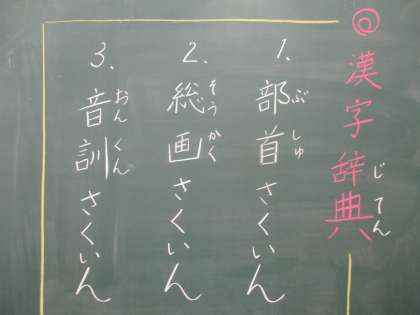 ◎漢字辞典
じてん
1. 部首さくいん
ぶしゅ
2. 総画さくいん
そうかく
3. 音訓さくいん
おんくん